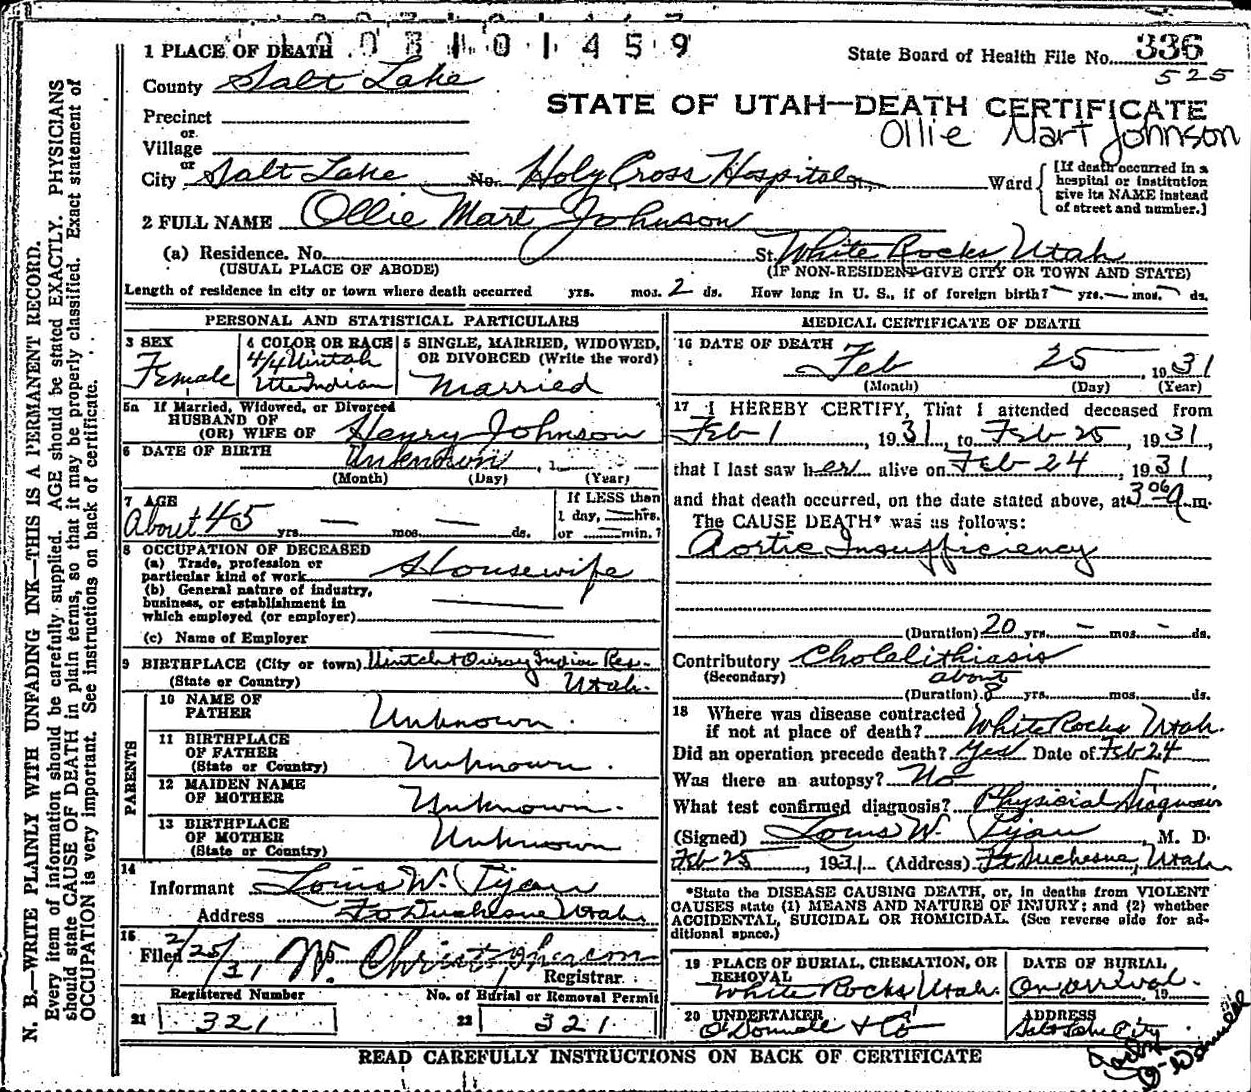 1003101459
1 PLACE OF DEATH
State Board of Health File No. 336
525
County Salt Lake
STATE OF UTAH—DEATH CERTIFICATE
Ollie Mart Johnson
Precinct
or
Village
or
City Salt Lake No. Holy Cross Hospital St., Ward
[If death occurred in a
hospital or institution
give its NAME instead
of street and number.]
2 FULL NAME Ollie Mart Johnson
(a) Residence. No. St. White Rocks, Utah
(USUAL PLACE OF ABODE) (IF NON-RESIDENT GIVE CITY OR TOWN AND STATE)
Length of residence in city or town where death occurred yrs. mos. 2 ds. How long in U. S., if of foreign birth? — yrs. — mos. — ds.
PERSONAL AND STATISTICAL PARTICULARS
3 SEX
Female
4 COLOR OR RACE
4/4 Uintah
Ute Indian
5 SINGLE, MARRIED, WIDOWED,
OR DIVORCED (Write the word)
Married
5a If Married, Widowed, or Divorced
HUSBAND OF
(OR) WIFE OF Henry Johnson
6 DATE OF BIRTH Unknown, 1
(Month) (Day) (Year)
7 AGE
About 45 yrs. — mos. — ds.
If LESS than
1 day, — hrs.
or — min.?
8 OCCUPATION OF DECEASED
(a) Trade, profession or
particular kind of work Housewife
(b) General nature of industry,
business, or establishment in
which employed (or employer)
(c) Name of Employer
9 BIRTHPLACE (City or town) Uintah & Ouray Indian Res.
(State or Country) Utah.
PARENTS
10 NAME OF
FATHER Unknown.
11 BIRTHPLACE
OF FATHER
(State or Country) Unknown.
12 MAIDEN NAME
OF MOTHER Unknown.
13 BIRTHPLACE
OF MOTHER
(State or Country) Unknown
14
Informant Louis W. Tyau
Address Ft. Duchesne Utah
15
Filed 2/25/31 W. Christopherson
Registrar
Registered Number
21 321
No. of Burial or Removal Permit
22 321
MEDICAL CERTIFICATE OF DEATH
16 DATE OF DEATH
Feb 25, 1931
(Month) (Day) (Year)
17 I HEREBY CERTIFY, That I attended deceased from
Feb 1, 1931, to Feb 25, 1931,
that I last saw her alive on Feb 24, 1931,
and that death occurred, on the date stated above, at 3 06 a m.
The CAUSE DEATH* was as follows:
Aortic Insufficiency
(Duration) 20 yrs. — mos. — ds.
Contributory Cholelithiasis
(Secondary) about
(Duration) 8 yrs. mos. ds.
18 Where was disease contracted
if not at place of death? White Rocks, Utah.
Did an operation precede death? Yes Date of Feb 24
Was there an autopsy? No
What test confirmed diagnosis? Physical Diagnosis
(Signed) Louis W. Tyau, M. D.
Feb 25, 1931 (Address) Ft Duchesne, Utah
*State the DISEASE CAUSING DEATH, or, in deaths from VIOLENT
CAUSES state (1) MEANS AND NATURE OF INJURY; and (2) whether
ACCIDENTAL, SUICIDAL OR HOMICIDAL. (See reverse side for ad-
ditional space.)
19 PLACE OF BURIAL, CREMATION, OR
REMOVAL
White Rocks Utah.
DATE OF BURIAL
On arrival. 19
20 UNDERTAKER
O'Donnell & Co
ADDRESS
Salt Lake City
READ CAREFULLY INSTRUCTIONS ON BACK OF CERTIFICATE
N. B.—WRITE PLAINLY WITH UNFADING INK—THIS IS A PERMANENT RECORD.
Every item of information should be carefully supplied. AGE should be stated EXACTLY. PHYSICIANS
should state CAUSE OF DEATH in plain terms, so that it may be properly classified. Exact statement of
OCCUPATION is very important. See instructions on back of certificate.